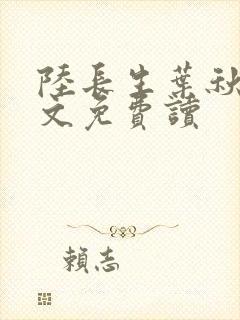 陸長生葉秋
文免費讀
賴志